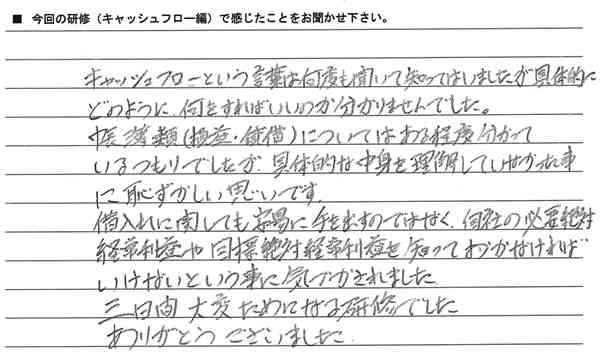 ■ 今回の研修（キャッシュフロー編）で感じたことをお聞かせ下さい。
キャッシュフローという言葉は何度も聞いて知ってはいましたが具体的に
どのように、何をすればいいのか分かりませんでした。
帳簿類（損益・貸借）についてはある程度分かって
いるつもりでしたが、具体的な中身を理解していなかった事
に恥ずかしい思いです。
借入れに関しても容易に手を出すのではなく、自社の必要絶対
経常利益や目標絶対経常利益を知っておかなければ
いけないという事に気づかされました
三日間大変ためになる研修でした
ありがとうございました。